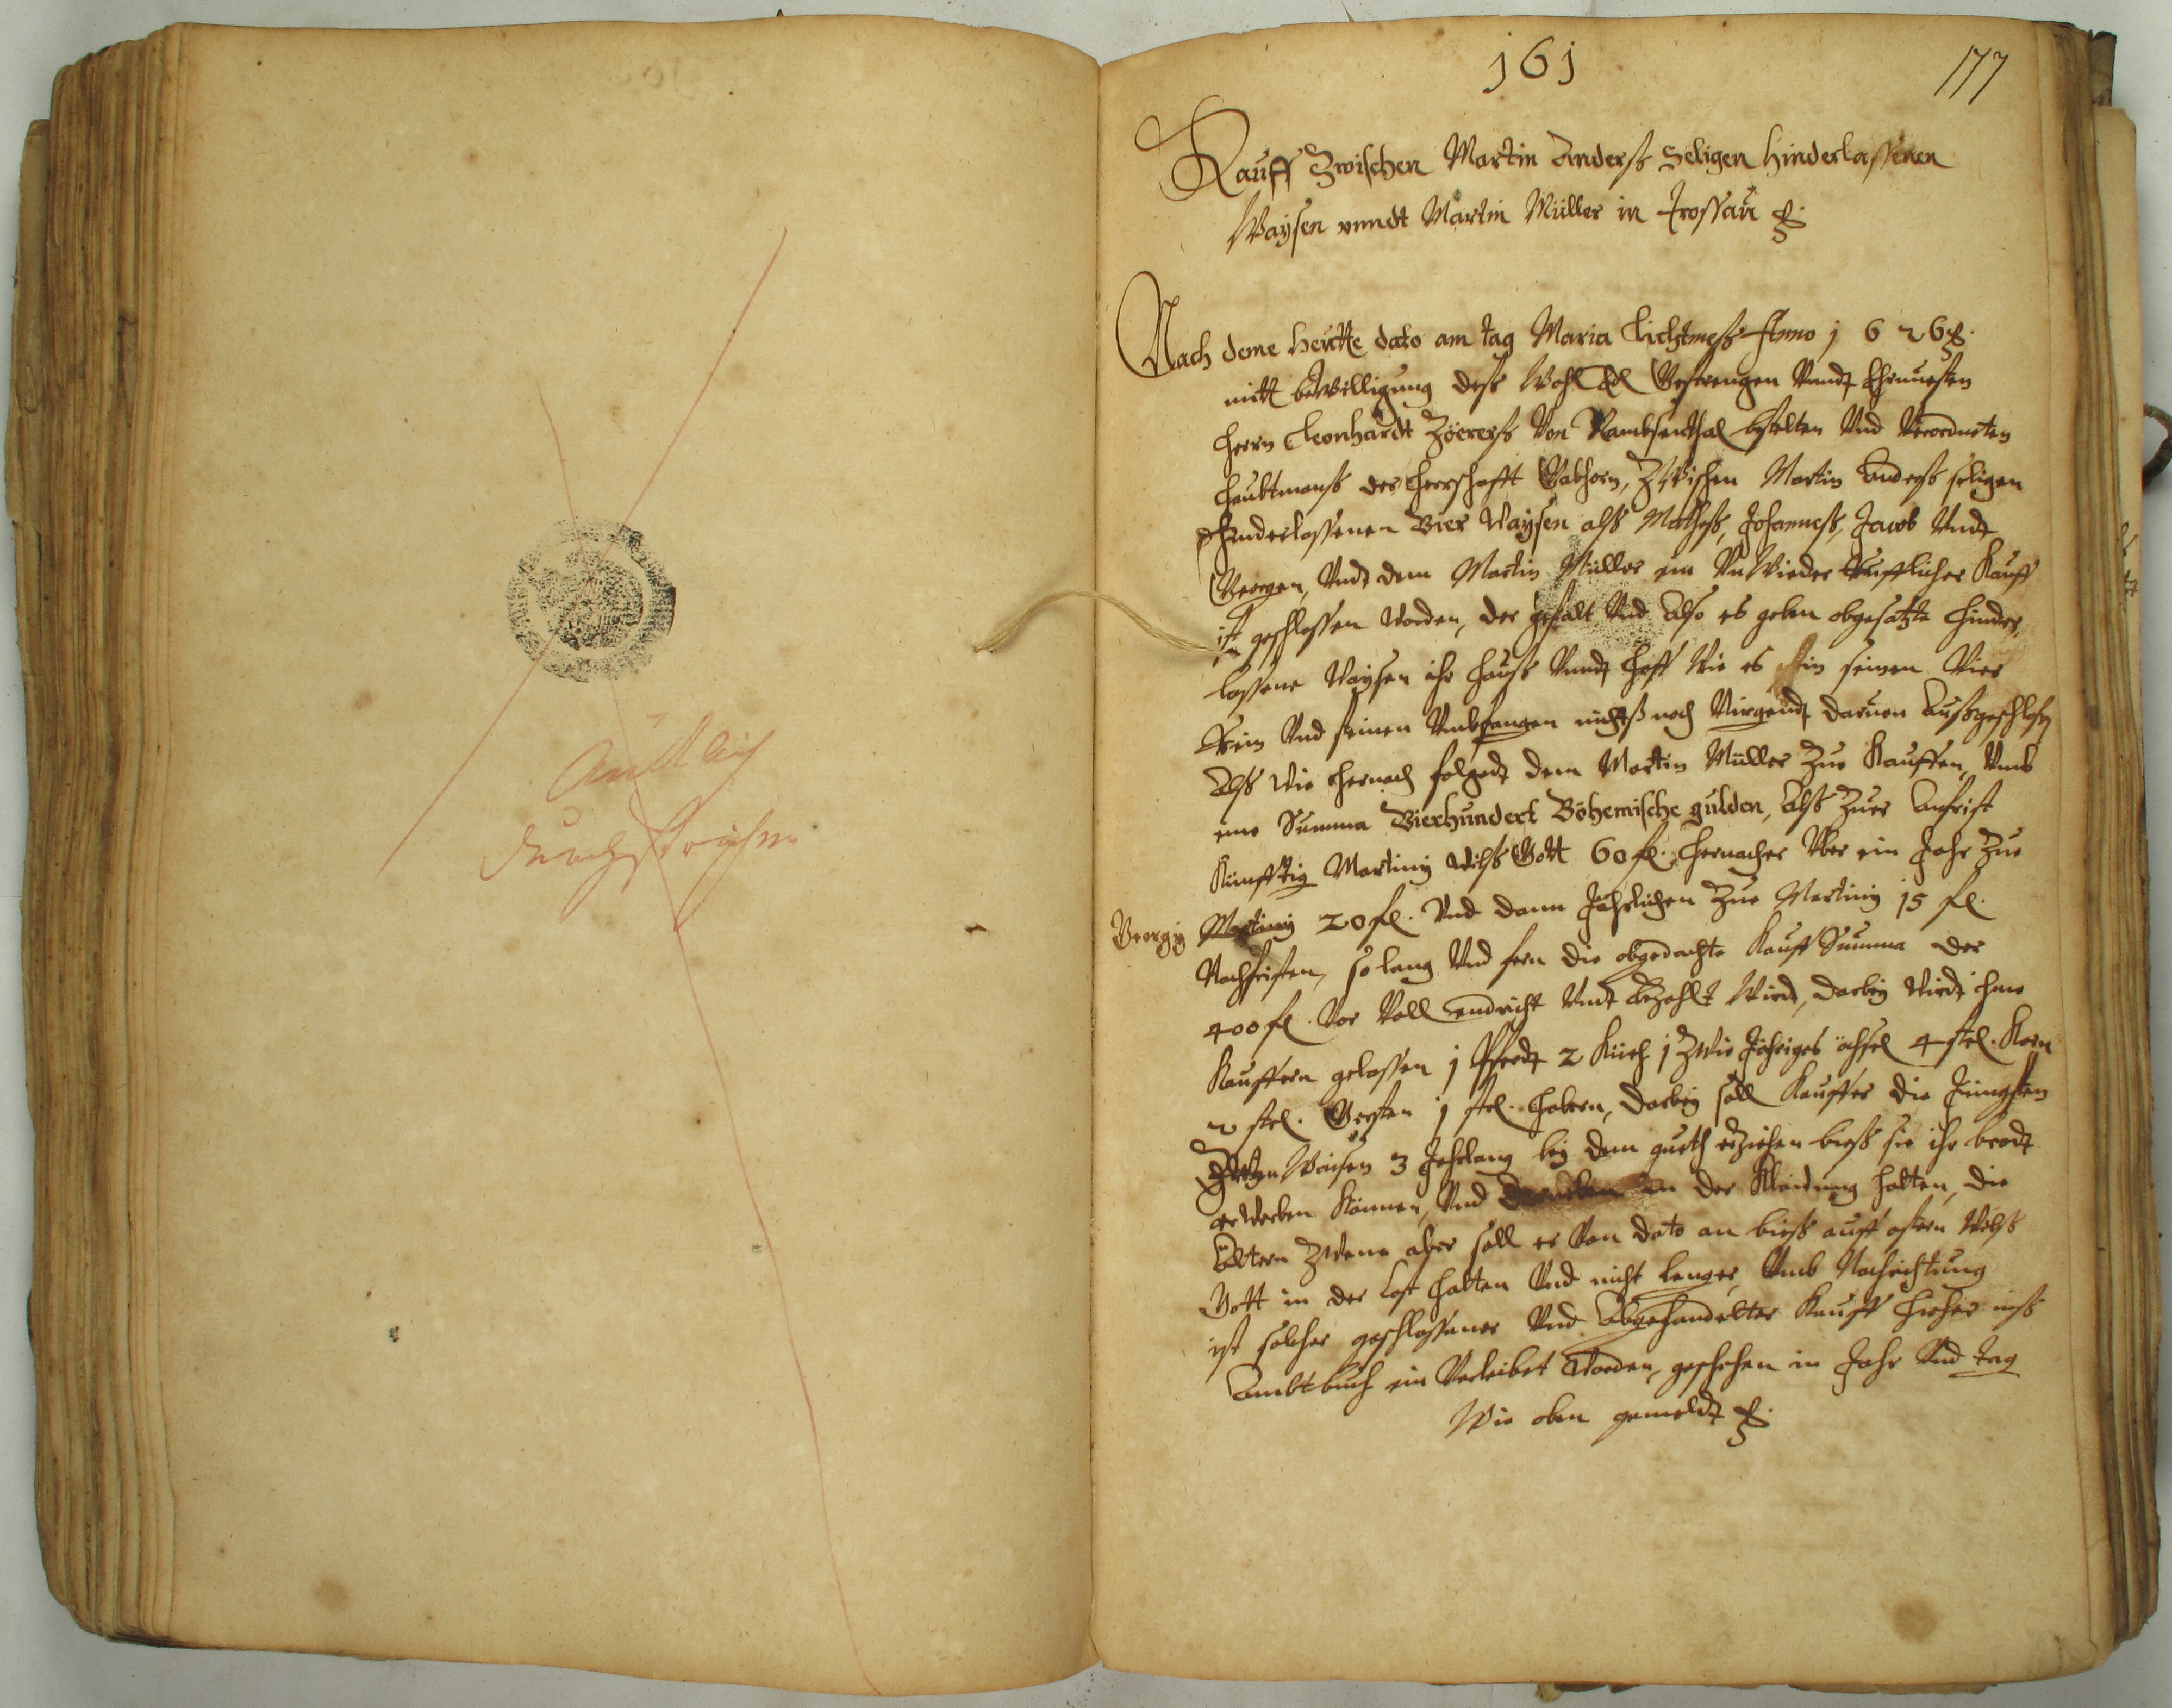 Amtlich
durchstrichen
161
177
Kauff Zwischen Martin Anderß Seligen Hinderlassenen
Waysen vnndt Martin Müller in Trossau
Nach deme heutte dato am tag Maria Lichtmeß Anno 1626
mitt bewilligung deß Wohl Edl Gestrengen Vnndt Ehrnuesten
Herrn Leonhardt Zöererß Von Rambsenthal bstelten Vnd Verordneten
Haubtmanß der Herrschafft Gabhorn, Zwischen Martin Anderß seligen
Hinderlassenen Vier Waysen alß Matheß, Johanneß, Jacob Vndt
Georgen, Vndt dem Martin Müller ein VnWieder Ruefflicher Kauff
ist geschlossen worden, der gestalt Vnd Also es geben obgesatzte Hinder
lassene Waysen ihr Hauß Vnndt Hoff Wie es in seinen Vier
Rein Vnd seinen Vmbfangen nichtß noch Nirgendt daruon Außgeschloßen
Alß wie Hernach folgedt dem Martin Müller Zue Kauffen, Vmb
eine Summa Vierhundert Böhemische gulden, Alß Zuer Anfrist
Künfftig Martiny wilß Gott 60 fl. Hernacher Vber ein Jahr Zue
Georgy Martiny 20 fl. Vnd dann Jährlichen Zue Martiny 15 fl.
Nachfristen, so lang Vnd fern die obgedachte Kauff Summa der
400 fl. Vor Voll endricht Vndt Bezahlt Wirdt, darbey Wirdt ihme
Kauffern gelassen 1 Pferdt 2 Küeh 1 Zwie Jähriges öchsel 4 stel. Korn
2 stel. Gersten 1 stel. Habern, darbey soll Kauffer die Jüngsten
Zwen Waisen 3 Jahrlang bey dem gueth erziehen bieß sie ihr brodt
gewerben Können, Vnd in der Kleidung halten, die
Eltern Zwene aber soll er Von dato an bieß auff ostern Wilß
Gott in der Cost halten Vnd nicht lenger, Vmb Nachrichtung
ist solcher geschlossener Vnd Abgehandelter Kauff hieher inß
Ambtbuch ein Verleibet Worden, geschehen in Jahr Vnd tag
Wie oben gemeldt